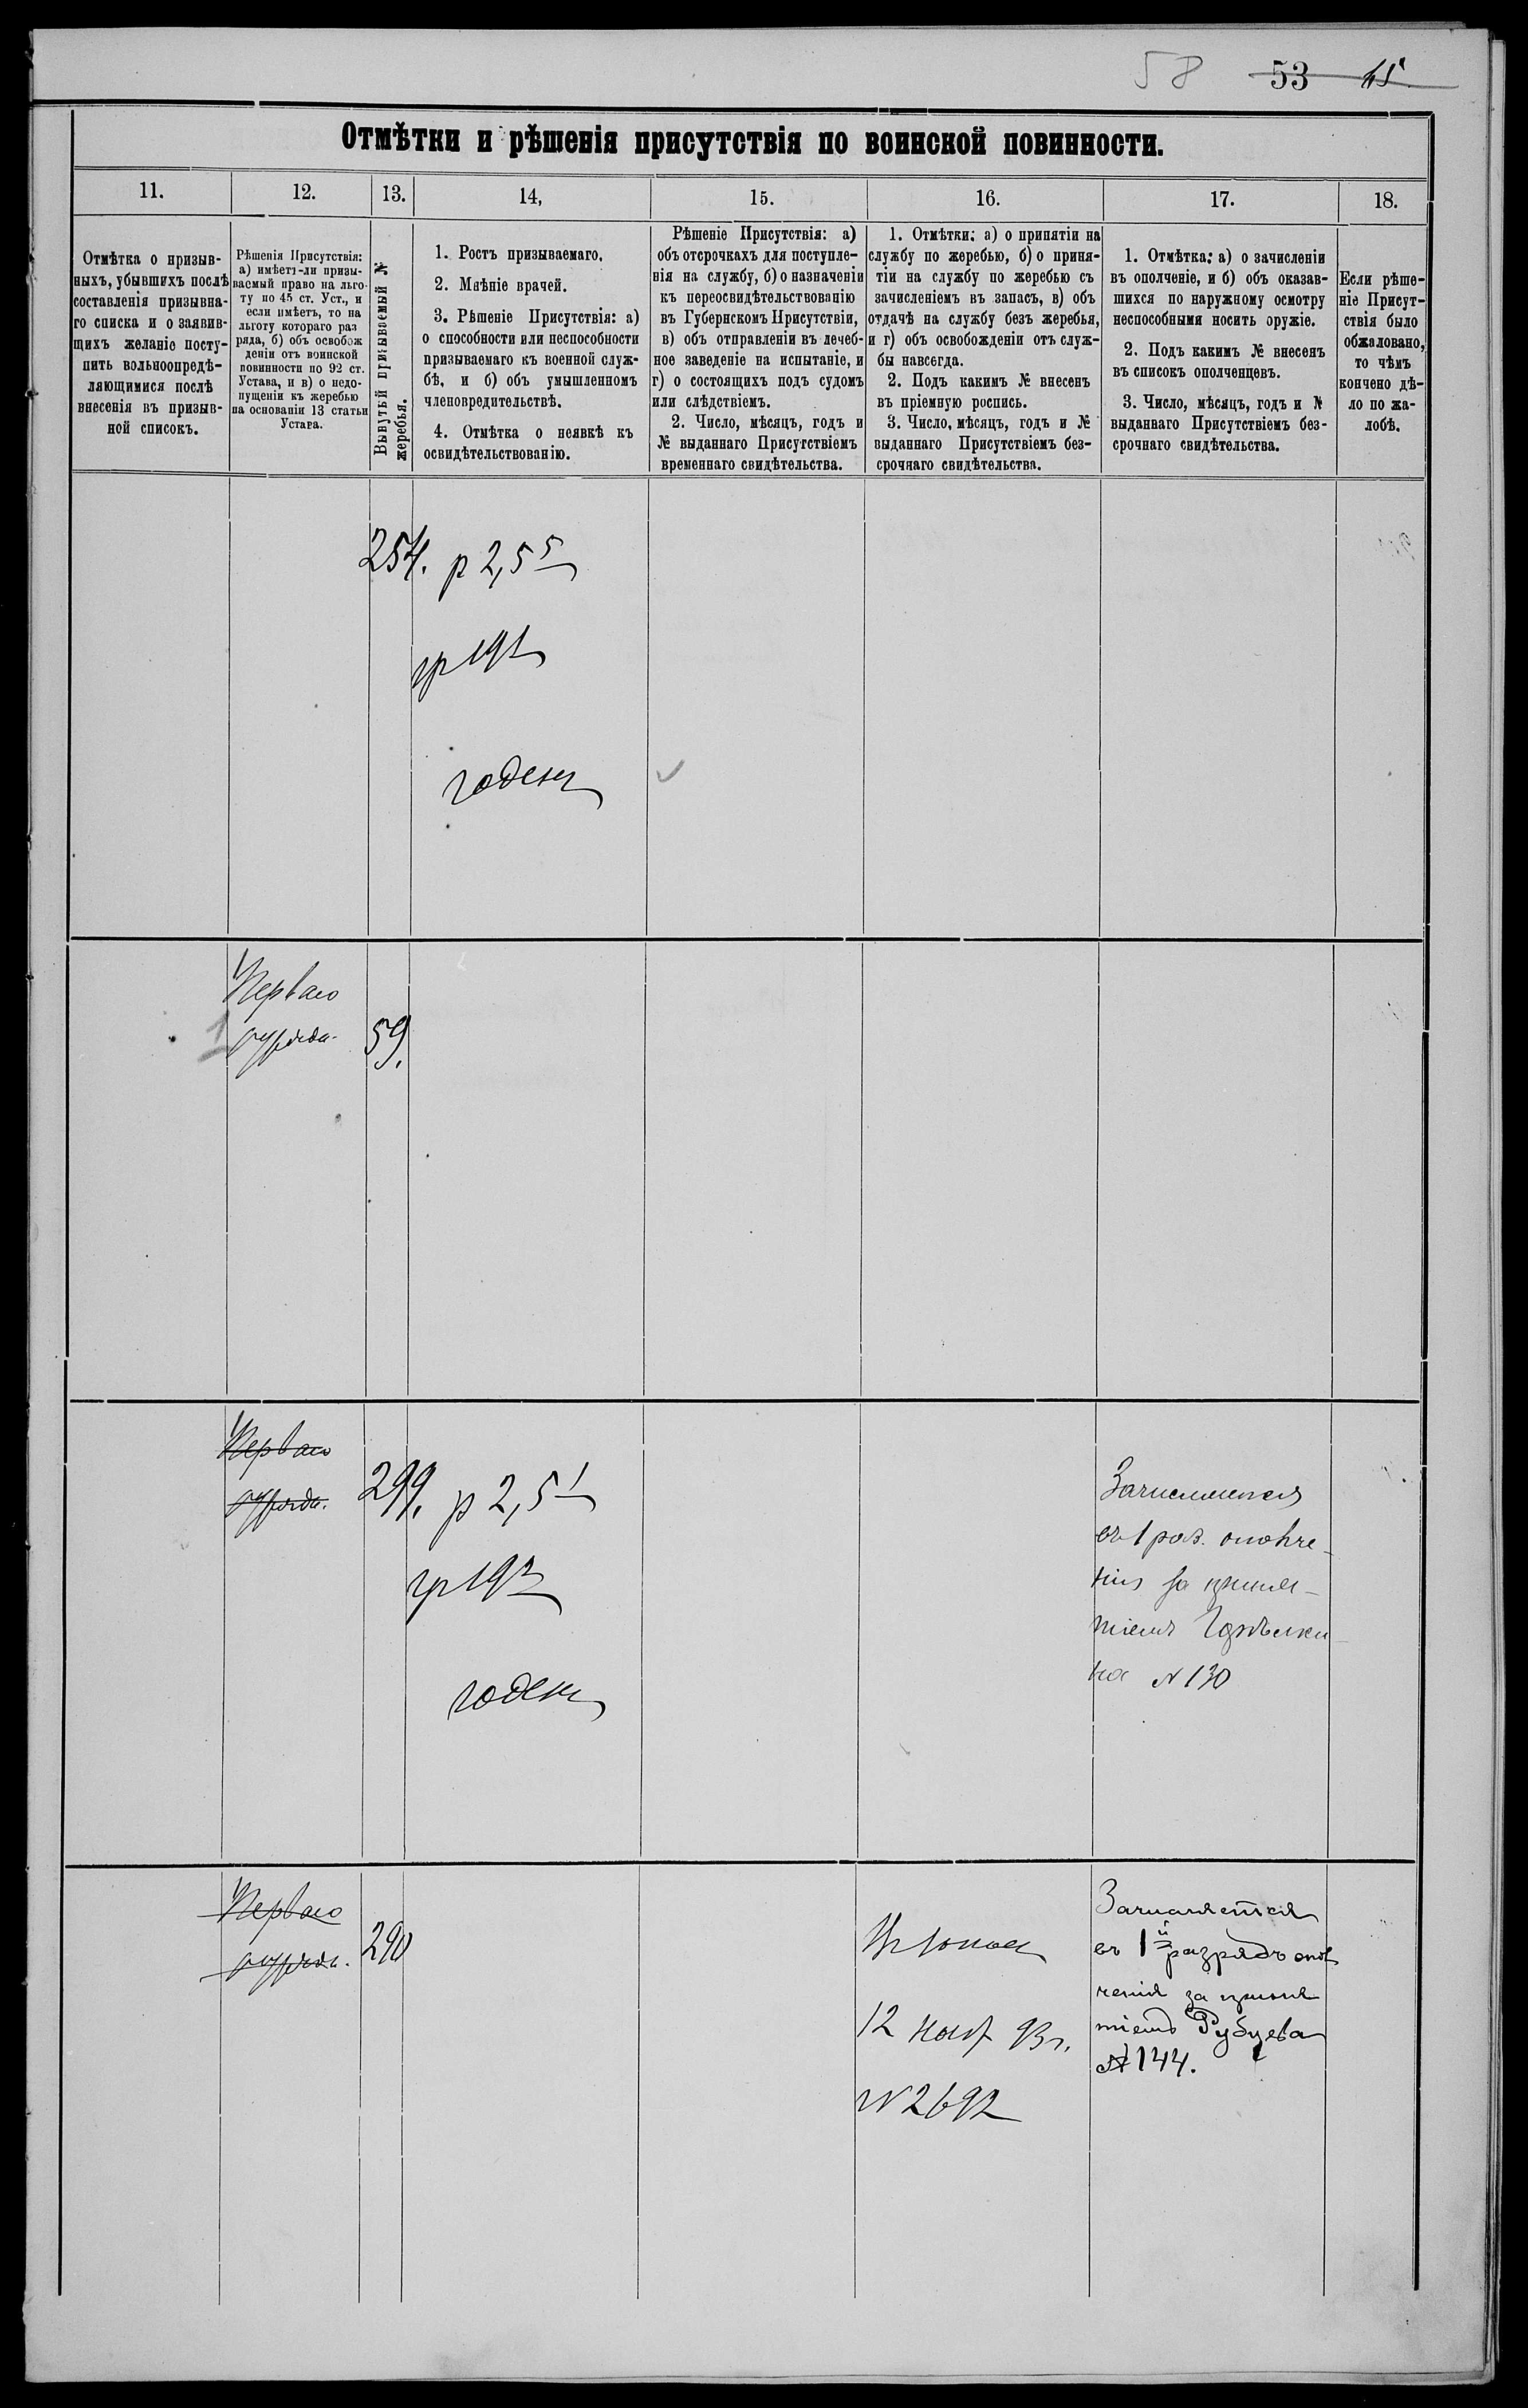 58 53 45
Отмѣтки и рѣшенія присутствія по воинской повинности.
11. 12. 13. 14, 15. 16. 17. 18.
Отмѣтка о призыв-
ныхъ, убывшихъ послѣ
составленія призывна-
го списка и о заявив-
щихъ желаніе посту-
пить вольноопредѣ-
ляющимися послѣ
внесенія въ призыв-
ной списокъ.
Рѣшенія Присутствія:
а) имѣетъ-ли призы-
ваемый право на льго-
ту по 45 ст. Уст., и
если имѣетъ, то на
льготу котораго раз
ряда, б) объ освобож
деніи отъ воинской
повинности по 92 ст.
Устава, и в) о недо-
пущеніи къ жеребью
на основаніи 13 статьи
Устава.
Вынутый призываемый №
жеребья.
1. Ростъ призываемаго.
2. Мнѣніе врачей.
3. Рѣшеніе Присутствія: а)
о способности или неспособности
призываемаго къ военной служ-
бѣ, и б) объ умышленномъ
членовредительствѣ.
4. Отмѣтка о неявкѣ къ
освидѣтельствованію.
Рѣшеніе Присутствія: а)
объ отсрочкахъ для поступле-
нія на службу, б) о назначеніи
къ переосвидѣтельствованію
въ Губернскомъ Присутствіи,
в) объ отправленіи въ лечеб-
ное заведеніе на испытаніе, и
г) о состоящихъ подъ судомъ
или слѣдствіемъ.
2. Число, мѣсяцъ, годъ и
№ выданнаго Присутствіемъ
временнаго свидѣтельства.
1. Отмѣтки: а) о принятіи на
службу по жеребью, б) о приня-
тіи на службу по жеребью съ
зачисленіемъ въ запасъ, в) объ
отдачѣ на службу безъ жеребья,
и г) объ освобожденіи отъ служ-
бы навсегда.
2. Подъ какимъ № внесенъ
въ пріемную роспись.
3. Число, мѣсяцъ, годъ и №
выданнаго Присутствіемъ без-
срочнаго свидѣтельства.
1. Отмѣтка: а) о зачисленіи
въ ополченіе, и б) объ оказав-
шихся по наружному осмотру
неспособными носить оружіе.
2. Подъ какимъ № внесенъ
въ списокъ ополченцевъ.
3. Число, мѣсяцъ, годъ и №
выданнаго Присутствіемъ без-
срочнаго свидѣтельства.
Если рѣше-
ніе Присут-
ствія было
обжаловано,
то чѣмъ
кончено дѣ-
ло по жа-
лобѣ.
254. р 2,5 5
гр 19 1/2
годенъ
1
Перваго
разряда.
59.
Перваго
разряда.
299. р 2,5 1
гр 19 1/2
годенъ
Зачисляется
въ 1 раз. ополче-
нія за приня-
тіемъ
на № 130
Перваго
разряда.
290
12 нояб 93 г.
№ 2692
Зачисляется
въ 1й разрядъ опол
ченія за приня
тіемъ Рубцева
№ 144.